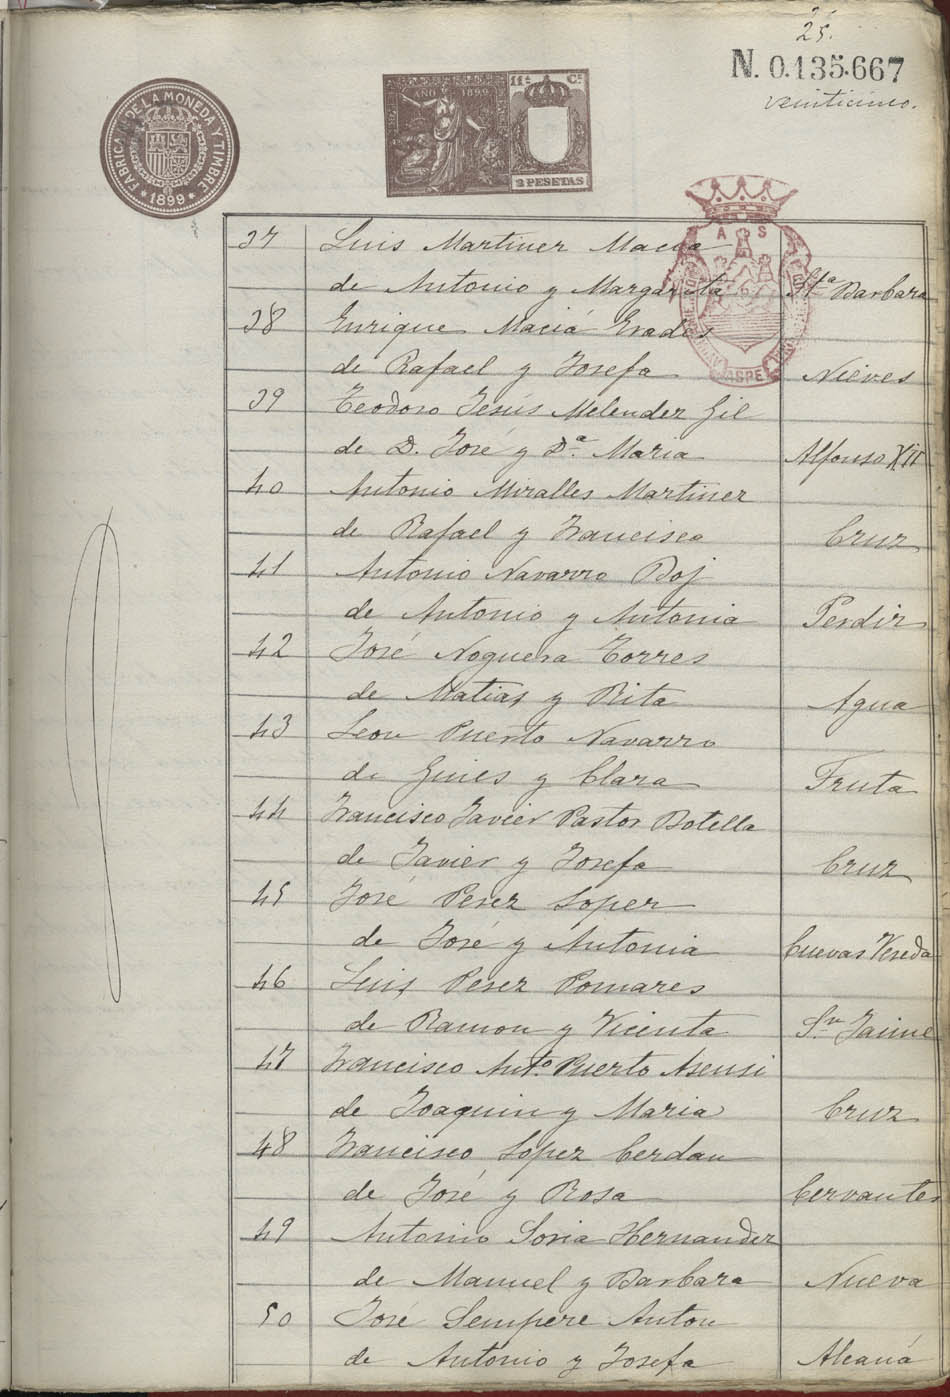 25.
N. 0.135.667
veinticinco.
FABRICA DE LA MONEDA Y TIMBRE
* 1899 *
AÑO 1899
11ª Cª
2 PESETAS
A S
ASPE
37 Luis Martinez Macia
de Antonio y Margarita Stª Barbara
38 Enrique Maciá Erades
de Rafael y Josefa Nieves
39 Teodoro Jesús Melendez Gil
de D. José y Dª Maria Alfonso XII
40 Antonio Miralles Martinez
de Rafael y Francisca Cruz
41 Antonio Navarro Boj
de Antonio y Antonia Perdiz
42 José Noguera Torres
de Matias y Rita Agua
43 Leon Puerto Navarro
de Gines y Clara Fruta
44 Francisco Javier Pastor Botella
de Javier y Josefa Cruz
45 José Perez Lopez
de José y Antonia Cuevas Vereda
46 Luis Perez Pomares
de Ramon y Vicenta Sn Jaime
47 Francisco Antº Puerto Asensi
de Joaquin y Maria Cruz
48 Francisco Lopez Cerdan
de José y Rosa Cervantes
49 Antonio Soria Hernandez
de Manuel y Barbara Nueva
50 José Sempere Anton
de Antonio y Josefa Alcaná